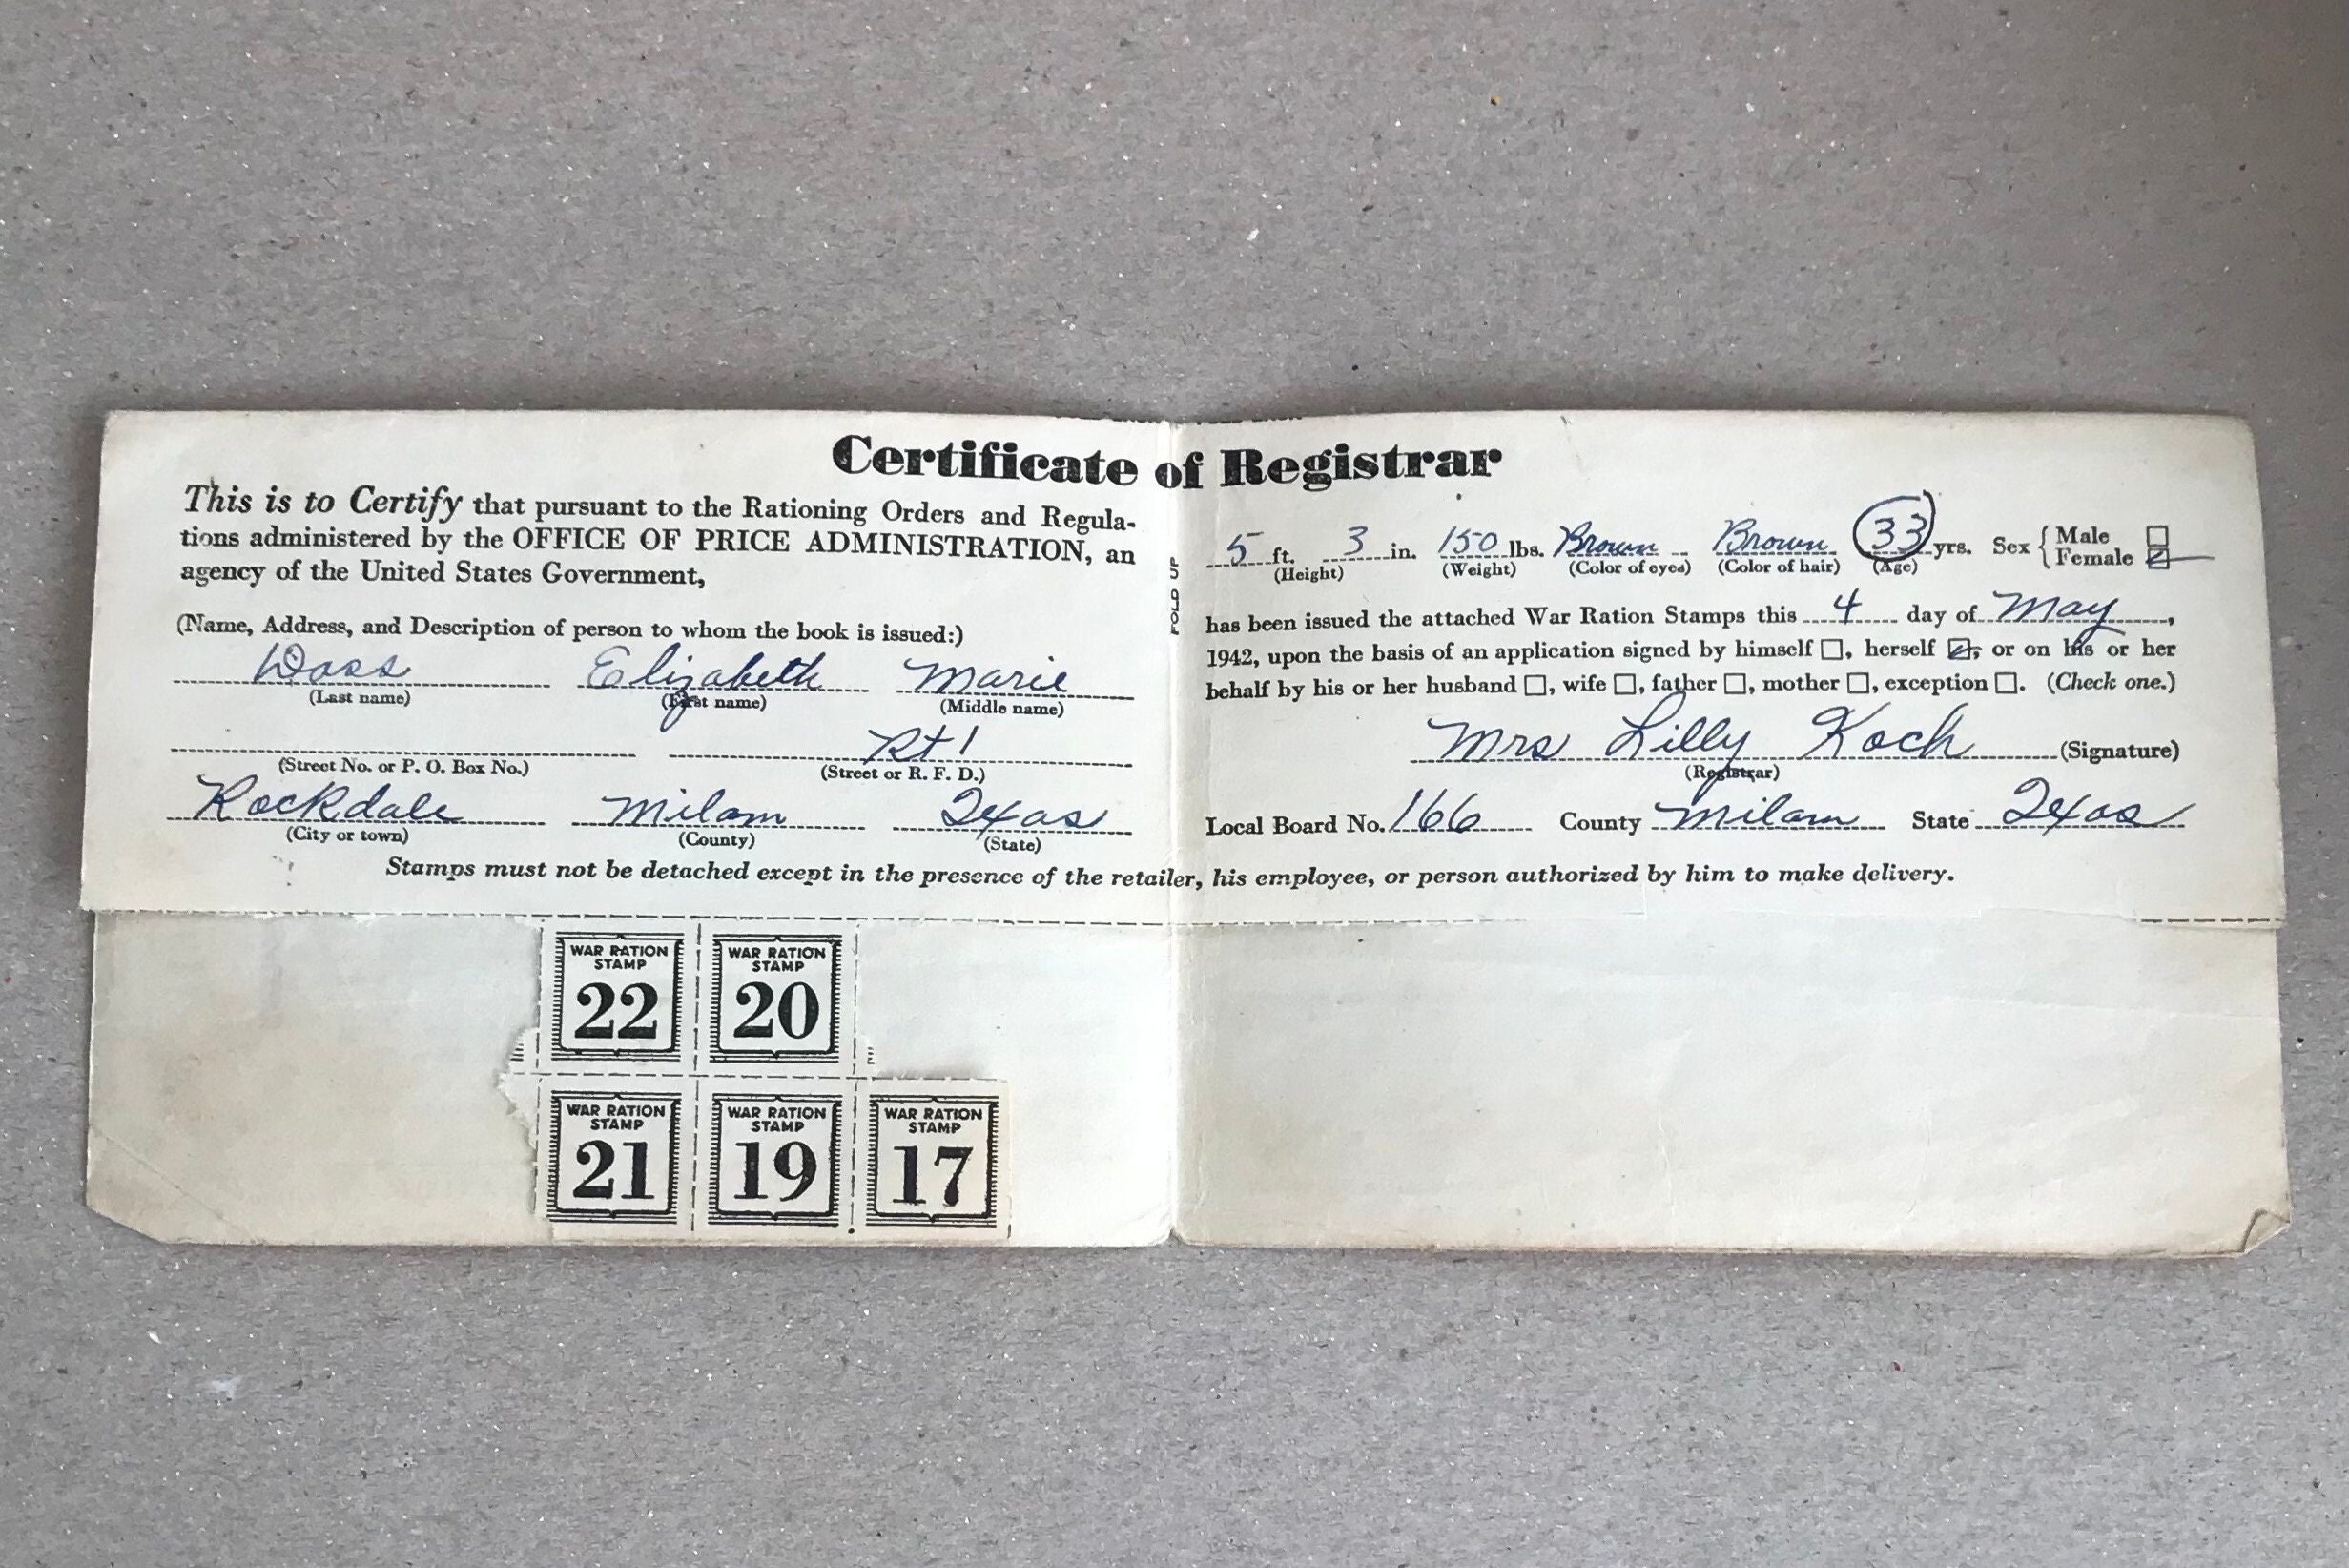 Certificate of Registrar
This is to Certify that pursuant to the Rationing Orders and Regula-
tions administered by the OFFICE OF PRICE ADMINISTRATION, an
agency of the United States Government,
(Name, Address, and Description of person to whom the book is issued:)
Doss Elizabeth Marie
(Last name) (First name) (Middle name)
Rt 1
(Street No. or P. O. Box No.) (Street or R. F. D.)
Rockdale Milam Texas
(City or town) (County) (State)
FOLD UP
5 ft. 3 in. 150 lbs. Brown Brown 33 yrs. Sex { Male
Female
(Height) (Weight) (Color of eyes) (Color of hair) (Age)
has been issued the attached War Ration Stamps this 4 day of May,
1942, upon the basis of an application signed by himself ☐, herself ☑, or on his or her
behalf by his or her husband ☐, wife ☐, father ☐, mother ☐, exception ☐. (Check one.)
Mrs Lilly Koch (Signature)
(Registrar)
Local Board No. 166 County Milam State Texas
Stamps must not be detached except in the presence of the retailer, his employee, or person authorized by him to make delivery.
WAR RATION STAMP 22
WAR RATION STAMP 20
WAR RATION STAMP 21
WAR RATION STAMP 19
WAR RATION STAMP 17